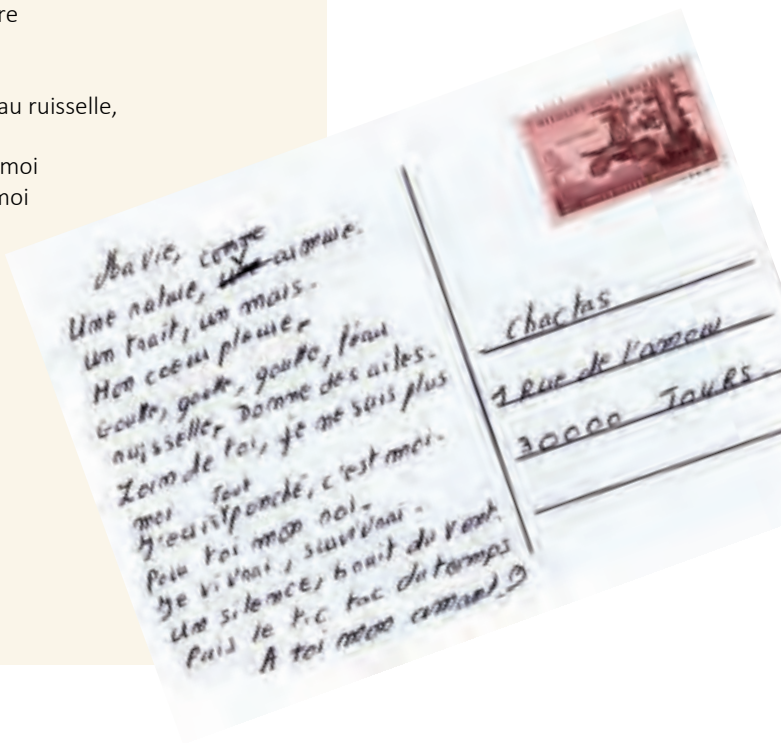 re
au ruisselle,
moi
moi
Ma vie, conte
Une nature, une armure.
Un trait, un mais.
Mon coeur pleure,
Goutte, goutte, goutte, l'eau
ruisselle, Donne des ailes.
Loin de toi, je ne sais plus
moi Tout
c'est moi.
Pour toi mon roi.
Je vivrai, survivrai.
Un silence, bruit du vent
Puis le tic tac du temps
A toi mon amant
Chactas
1 Rue de l'amour
30000 TOURS.